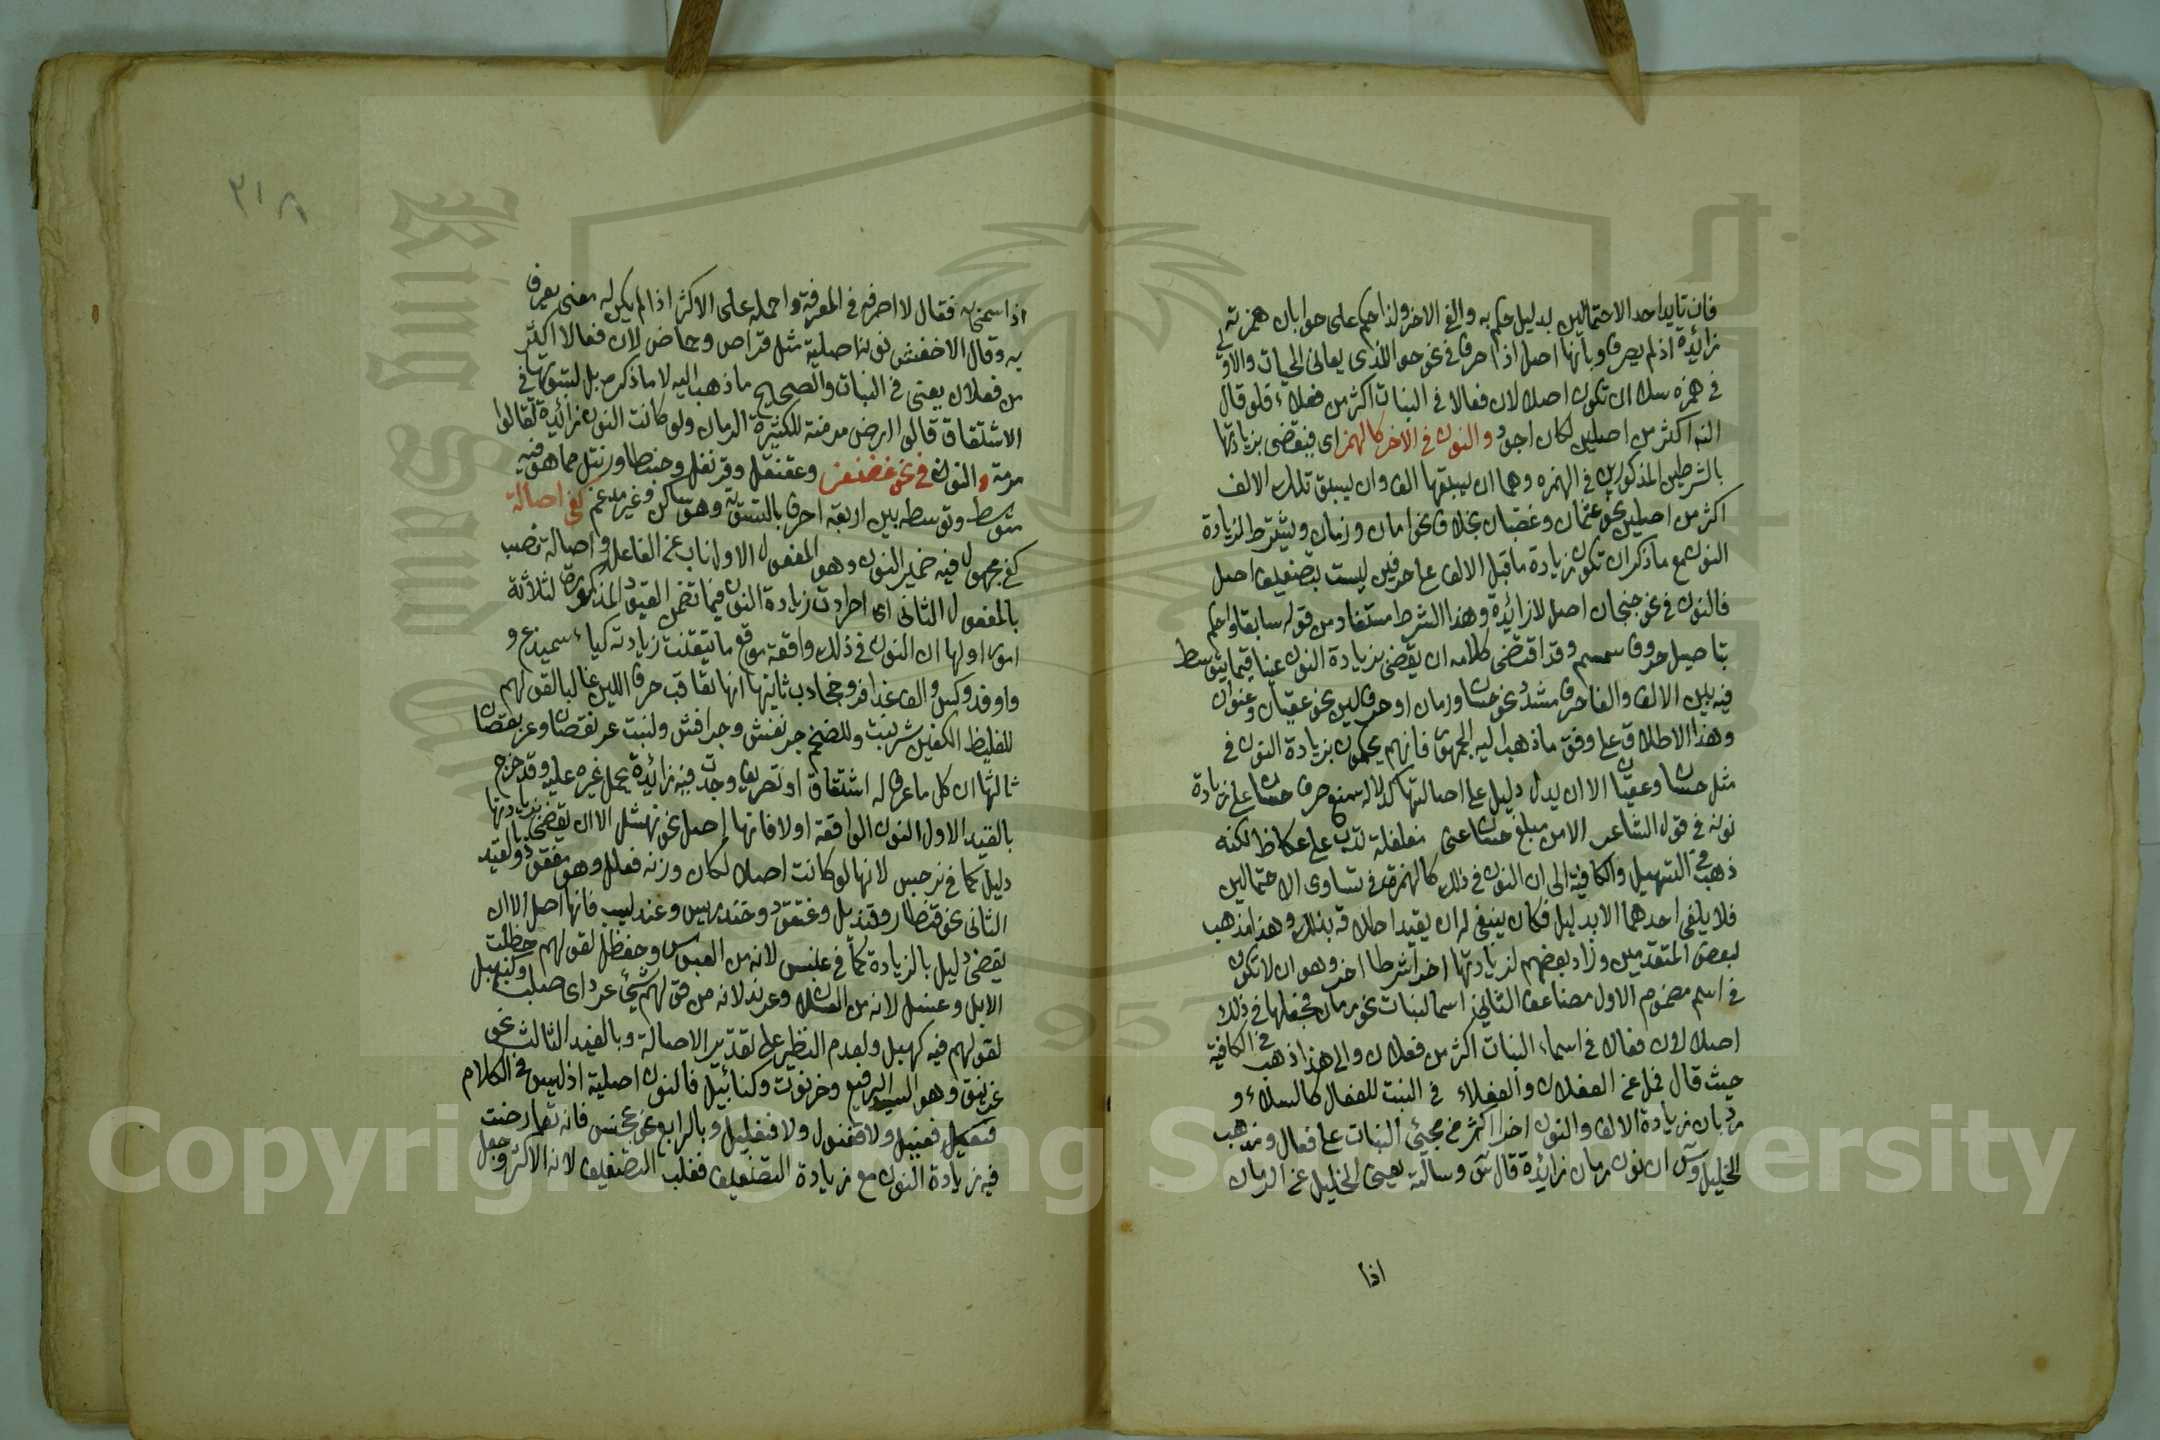 فان تايد احد الاحتمالين بدليل حكم به والغي الاخر ولذا حكم على حوا بان همزته
زائدة اذا لم يصرف وبانها اصل اذا صرف في نحو حوا للذي يعاني الحيات والاولى
في همزة سلاء ان تكون اصلا لان فعالا في النبات اكثر من فعلاء فلو قال
اكثر من اصلين لكان اجود والنون في الاخر كالهمز اي فيقضى بزيادتها
بالشرطين المذكورين في الهمزة وهما ان يسبقها الف وان يسبق تلك الالف
اكثر من اصلين نحو عثمان وغضبان بخلاف نحو امان وزمان ويشترط لزيادة
النون مع ما ذكر ان تكون زيادة ما قبل الالف على حرفين ليست بتضعيف اصل
فالنون في نحو جنجان اصل لا زائدة وهذا الشرط مستفاد من قوله سابقا واحكم
بتاصيل حروف سمسم وقد اقتضى كلامه ان يقضى بزيادة النون عينا فيما يتوسط
فيه بين الالف والفا حرف مشدد نحو حسان ورمان او حرف لين نحو عقيان وعنوان
وهذا الاطلاق على وفق ما ذهب اليه الجمهور فانهم يحكمون بزيادة النون في
مثل حسان وعقيان الا ان يدل دليل على اصالتها كدلالة منع صرف حسان على زيادة
نونه في قول الشاعر الا من مبلغ حسان عني مغلغلة تدب على عكاظ لكنه
ذهب في التسهيل والكافية الى ان النون في ذلك كالهمزة في تساوى الاحتمالين
فلا يلغى احدهما الا بدليل فكان ينبغي له ان يقيد اطلاقه بذلك وهذا مذهب
لبعض المتقدمين وزاد بعضهم لزيادتها اخرا شرطا اخر وهو ان لا تكون
في اسم مضموم الاول مضاعف الثاني اسما لنبات نحو رمان فجعلها في ذلك
اصلا لان فعالا في اسماء النبات اكثر من فعلان والى هذا ذهب في الكافية
حيث قال فمل عن الفعلان والفعلاء في النبت للفعال كالسلاء و
رد بان زيادة الالف والنون اخرا اكثر من مجيئ النبات على فعال ومذهب
الخليل وس ان نون رمان زائدة قال س وسالته يعني الخليل عن الرمان
اذا
٣١٨
اذا سمي به فقال لا اصرفه في المعرفة واحمله على الاكثر اذا لم يكن له معنى يعرف
به وقال الاخفش نونه اصلية مثل قراص وحماض لان فعالا اكثر
من فعلان يعني في النبات والصحيح ما ذهب اليه لا ما ذكره بل لثبوتها في
الاشتقاق قالوا ارض مرمنة للكثيرة الرمان ولو كانت النون زائدة لقالوا
مرمة والنون في نحو غضنفر وعقنقل وقرنفل وحبنطا ورنتل مما هو فيه
متوسط وتوسطه بين اربعة احرف بالسوية وهو ساكن وغير مدغم كفي اصالة
كفي مجهول فيه ضمير النون وهو المفعول الاول ناب عن الفاعل واصالة نصب
بالمفعول الثاني اي اطردت زيادة النون فيما تضمن القيود المذكورة لثلاثة
امور اولها ان النون في ذلك واقعة موقع ما تيقنت زيادته كياء سميدع و
واو فدوكس والف غذافر وجخادب ثانيها انها تعاقب حرف اللين غالبا لقولهم
للغليظ الكفين شرنبث وللضخم جرنفش وجرافش ولنبت عرنقصان وعريقصان
ثالثها ان كل ما عرف له اشتقاق او تصريف وجدت فيه زائدة يحمل غيره عليه وقد خرج
بالقيد الاول النون الواقعة اولا فانها اصل نحو نهشل الا ان يقضي بزيادتها
دليل كما في نرجس لانها لو كانت اصلا لكان وزنه فعلل وهو مفقود وبالقيد
الثاني نحو قنطار وقنديل وعنقود وخندريس وعندليب فانها اصل الا ان
يقضي دليل بالزيادة كما في عنبس لانه من العبوس وحنظل لقولهم حظلت
الابل وعنسل لانه من العسلان وعرند لانه من قولهم شئ عرد اي صلب وكنهبل
لقولهم فيه كهبل ولعدم النظير على تقدير الاصالة وبالقيد الثالث نحو
غرنيق وهو السيد الرفيع وخرنوب وكنابيل فالنون اصلية اذ ليس في الكلام
فنعيل ولا فعنول ولا فنعليل وبالرابع نحو عجنس فانه تعارضت
فيه زيادة النون مع زيادة التضعيف فغلب التضعيف لانه الاكثر وجعل
King Saud University
1957
Copyright © King Saud University